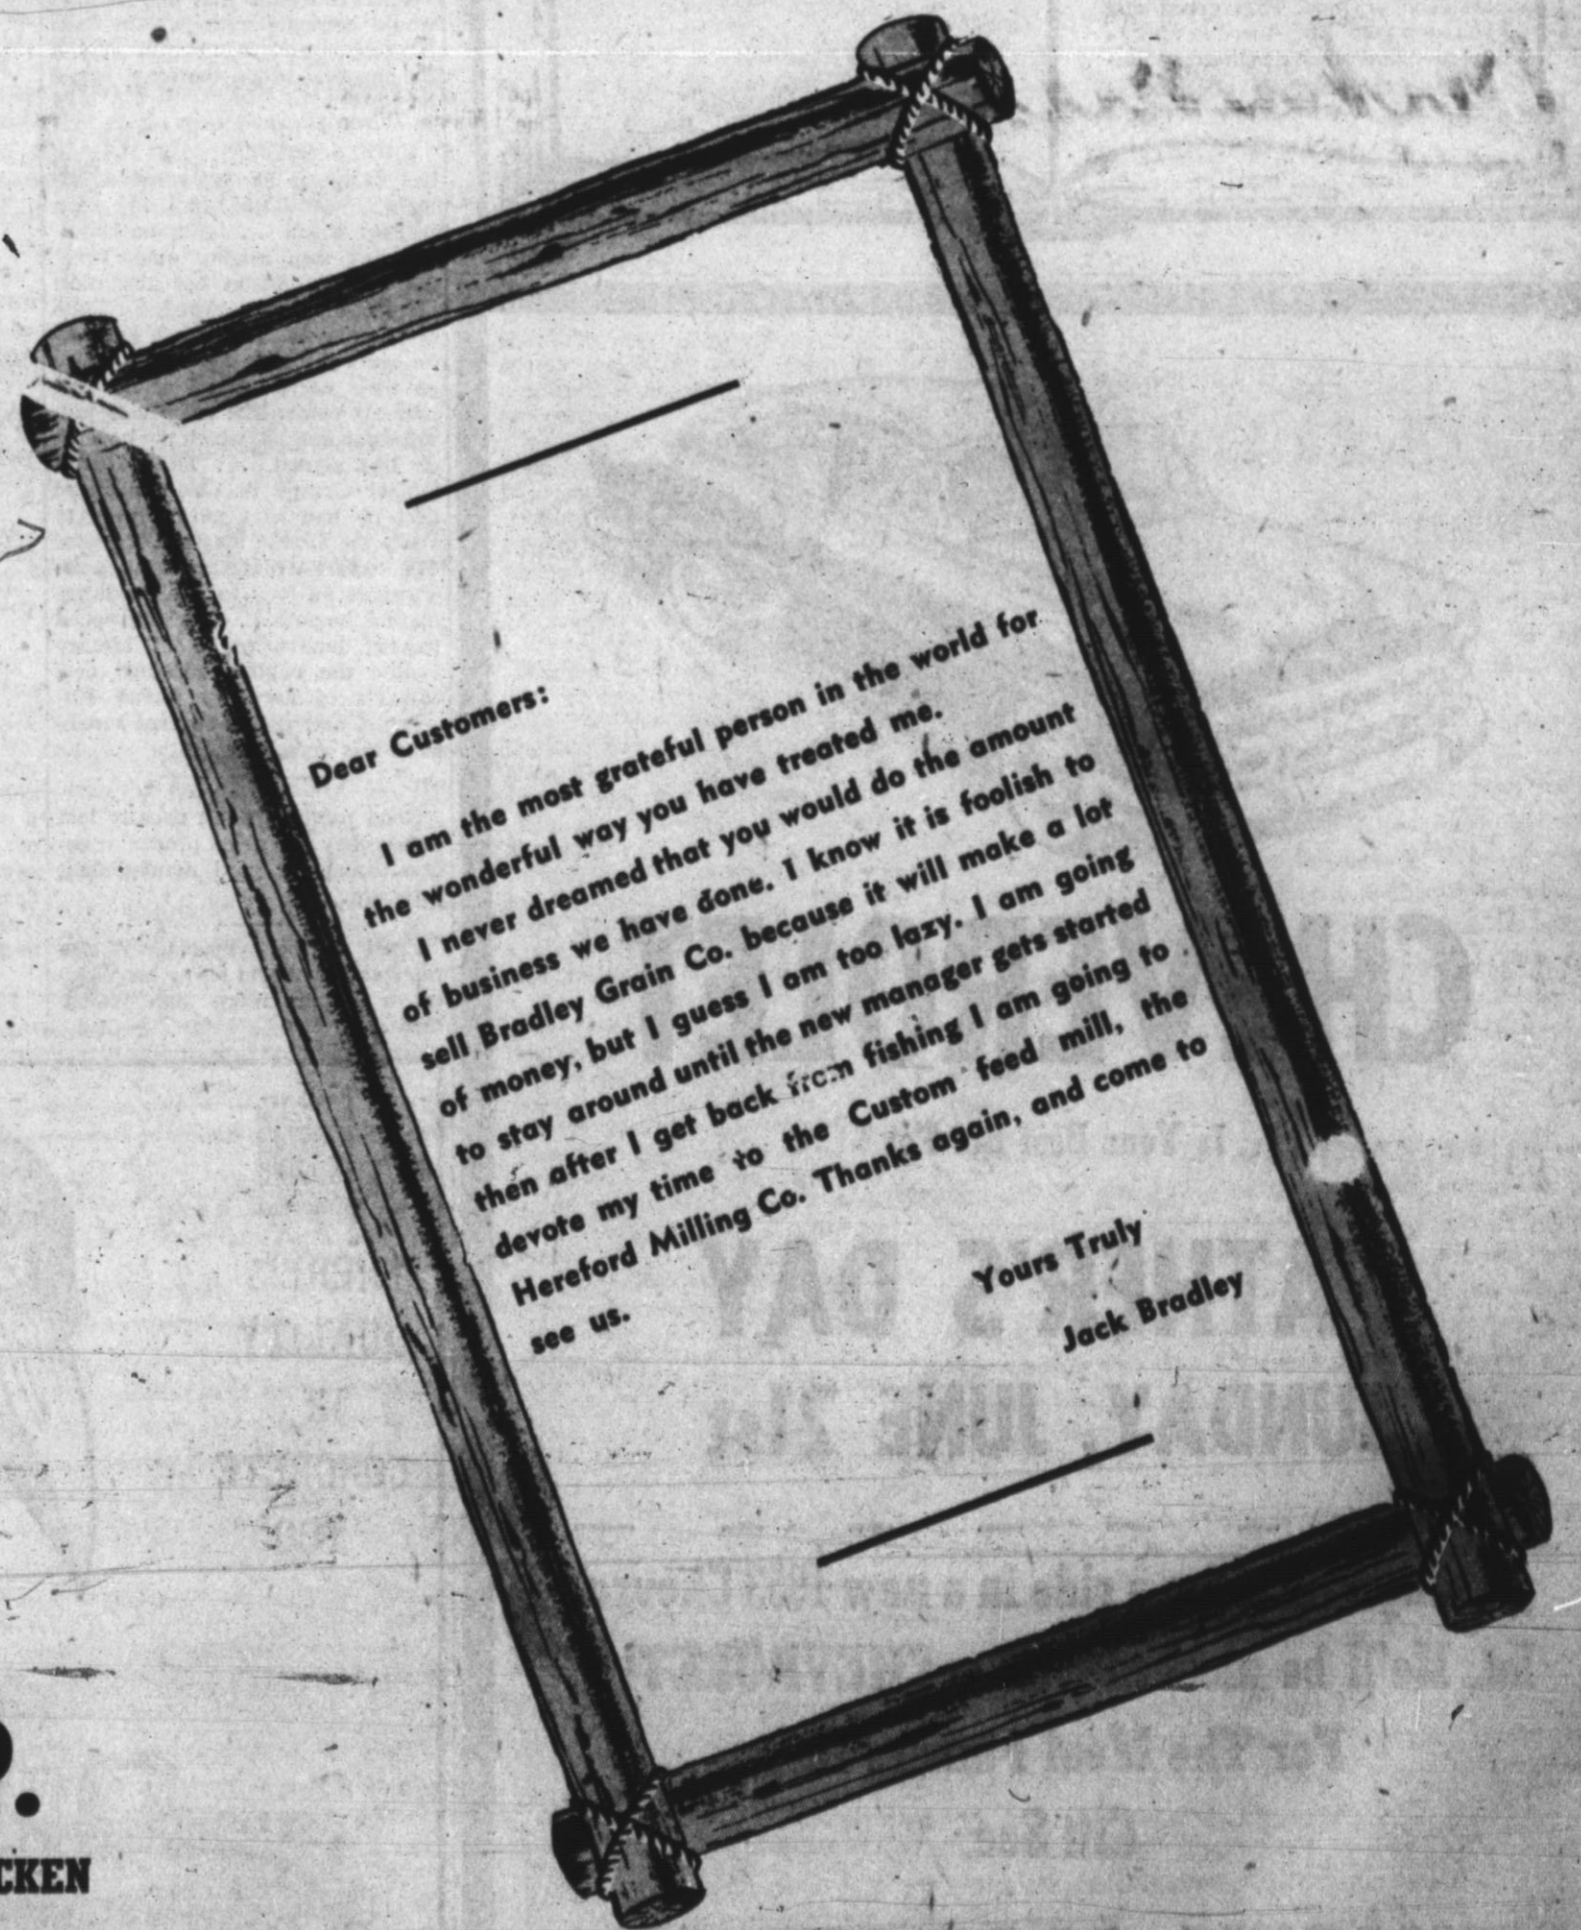 Dear Customers:
I am the most grateful person in the world for
the wonderful way you have treated me.
I never dreamed that you would do the amount
of business we have done. I know it is foolish to
sell Bradley Grain Co. because it will make a lot
of money, but I guess I am too lazy. I am going
to stay around until the new manager gets started
then after I get back from fishing I am going to
devote my time to the Custom feed mill, the
Hereford Milling Co. Thanks again, and come to
see us.
Yours Truly
Jack Bradley
CKEN